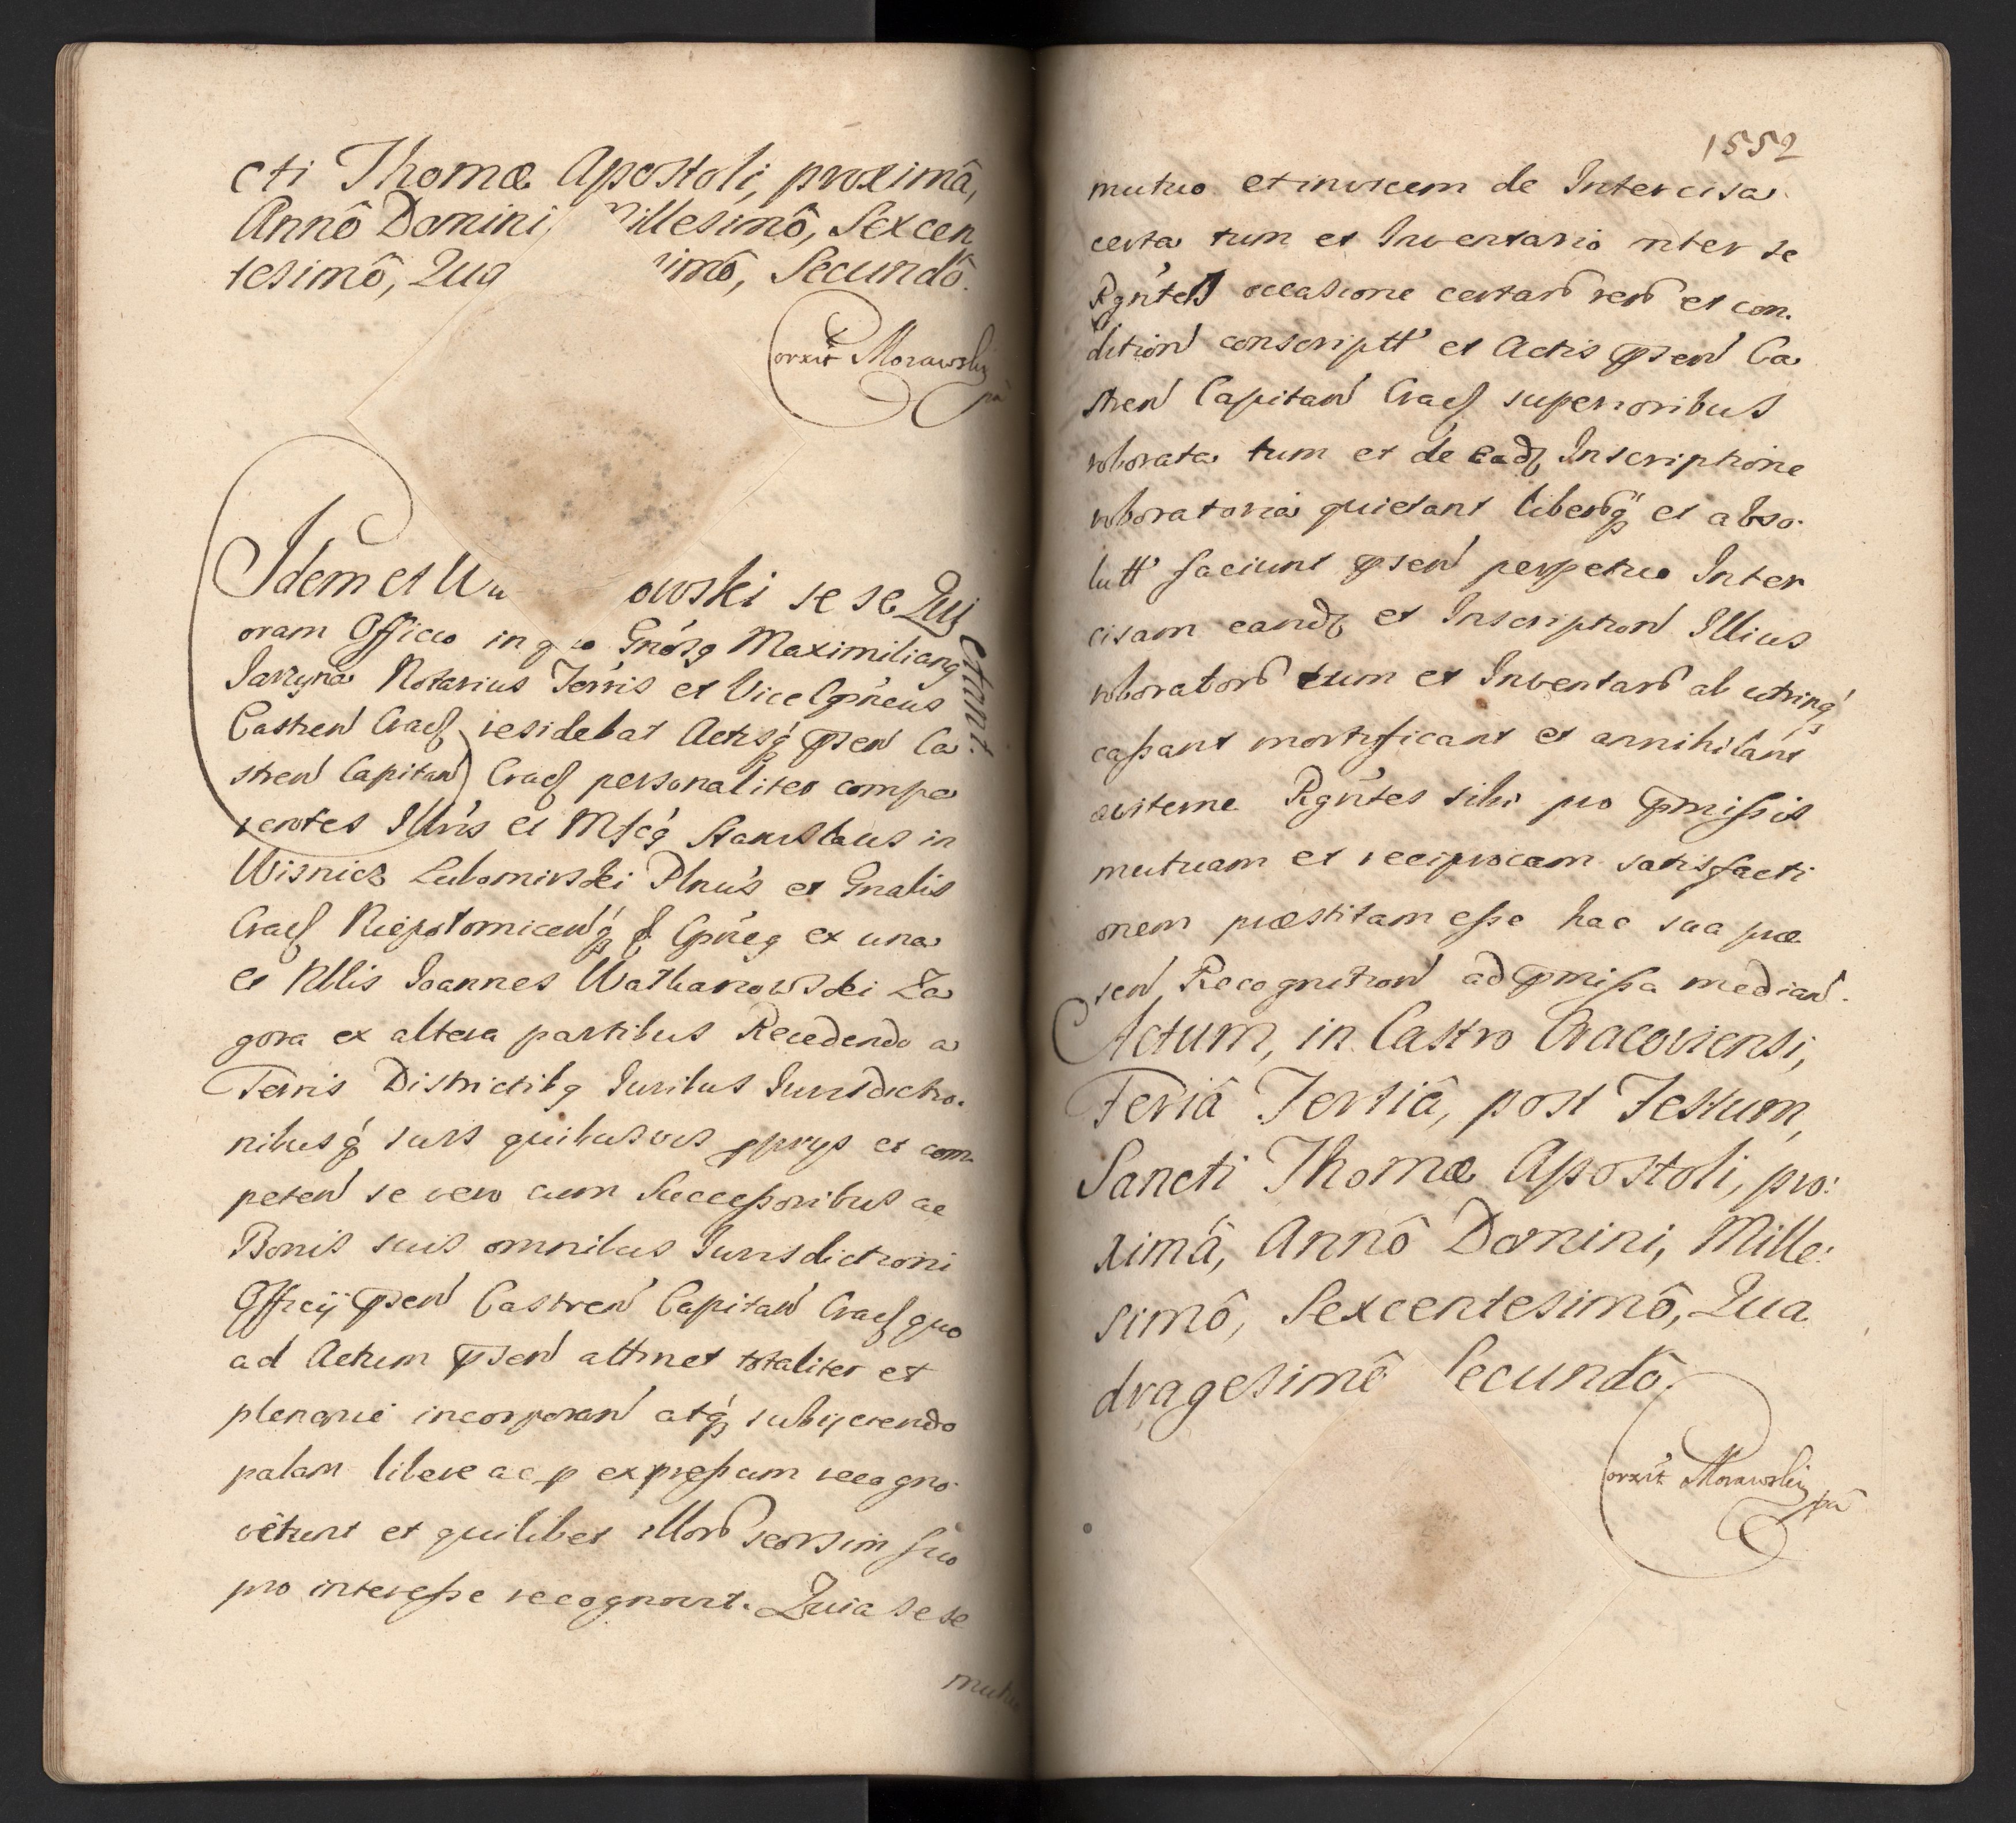 cti Thomæ Apostoli, proximâ,
Annô Domini, Millesimô, Sexcen
tesimô, Qua imô, Secundô.
orxit Morawski
pā
Idem et Wa owski se se Qui
etant.
oram Officio in quo Gnosq Maximilianq
Jarzyna Notarius Terris et Vice Cpneus
Castren Cracʃ residebat Actisq́ꝫ psen Ca
stren Capitan Cracʃ personaliter compa
rentes Illris et Mfcq Stanislaus in
Wisnicz Lubomirski Plnus et Gnalis
Cracʃ Niepolomicenq́ꝫ Cpneq ex una
et Nblis Joannes Wathanowski Za
gora ex altera partibus Recedendo a
Terris Districtibq Juribus Jurisdictio.
nibusq́ꝫ suis quibusvis pprys et com
peten se vero cum Successoribus ac
Bonis suis omnibus Jurisdictioni
Officij psen Castren Capitan Cracʃ quo
ad Actum psen attinet totaliter et
plenarie incorporan atq́ꝫ subijciendo
palam libere ac p expressum recogno.
verunt et quilibet illorꝫ seorsim suo
pro interesse recognovit. Quia se se
mutuo
1552
mutuo et invicem de Intercisa
certa tum et Inventario inter se
Rgntes occasione certarꝫ rerꝫ et con.
dition conscriptt et Actis psen Ca
stren Capitan Cracʃ superioribus
roborata tum et de eadꝫ Inscriptione
roboratoria quietant liberosq́ꝫ et abso.
lutt faciunt psen perpetuo Inter
cisam eandꝫ et Inscription Illius
roboratorꝫ tum et Inventarꝫ ab utrinq́ꝫ
cassant mortificant et annihilant
aviterne Rgntes sibi pro pmissis
mutuam et reciprocam satisfacti
onem præstitam esse hac sua præ
sen Recognition ad pmissa median.
Actum, in Castro Cracoviensi,
Feriâ Tertiâ, post Festum,
Sancti Thomæ Apostoli, pro:
ximâ, Annô Domini, Mille:
simô, Sexcentesimô, Qua
dragesimô Secundô.
orxit Morawski
pā